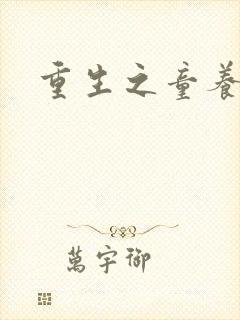 重生之童養
萬宇御